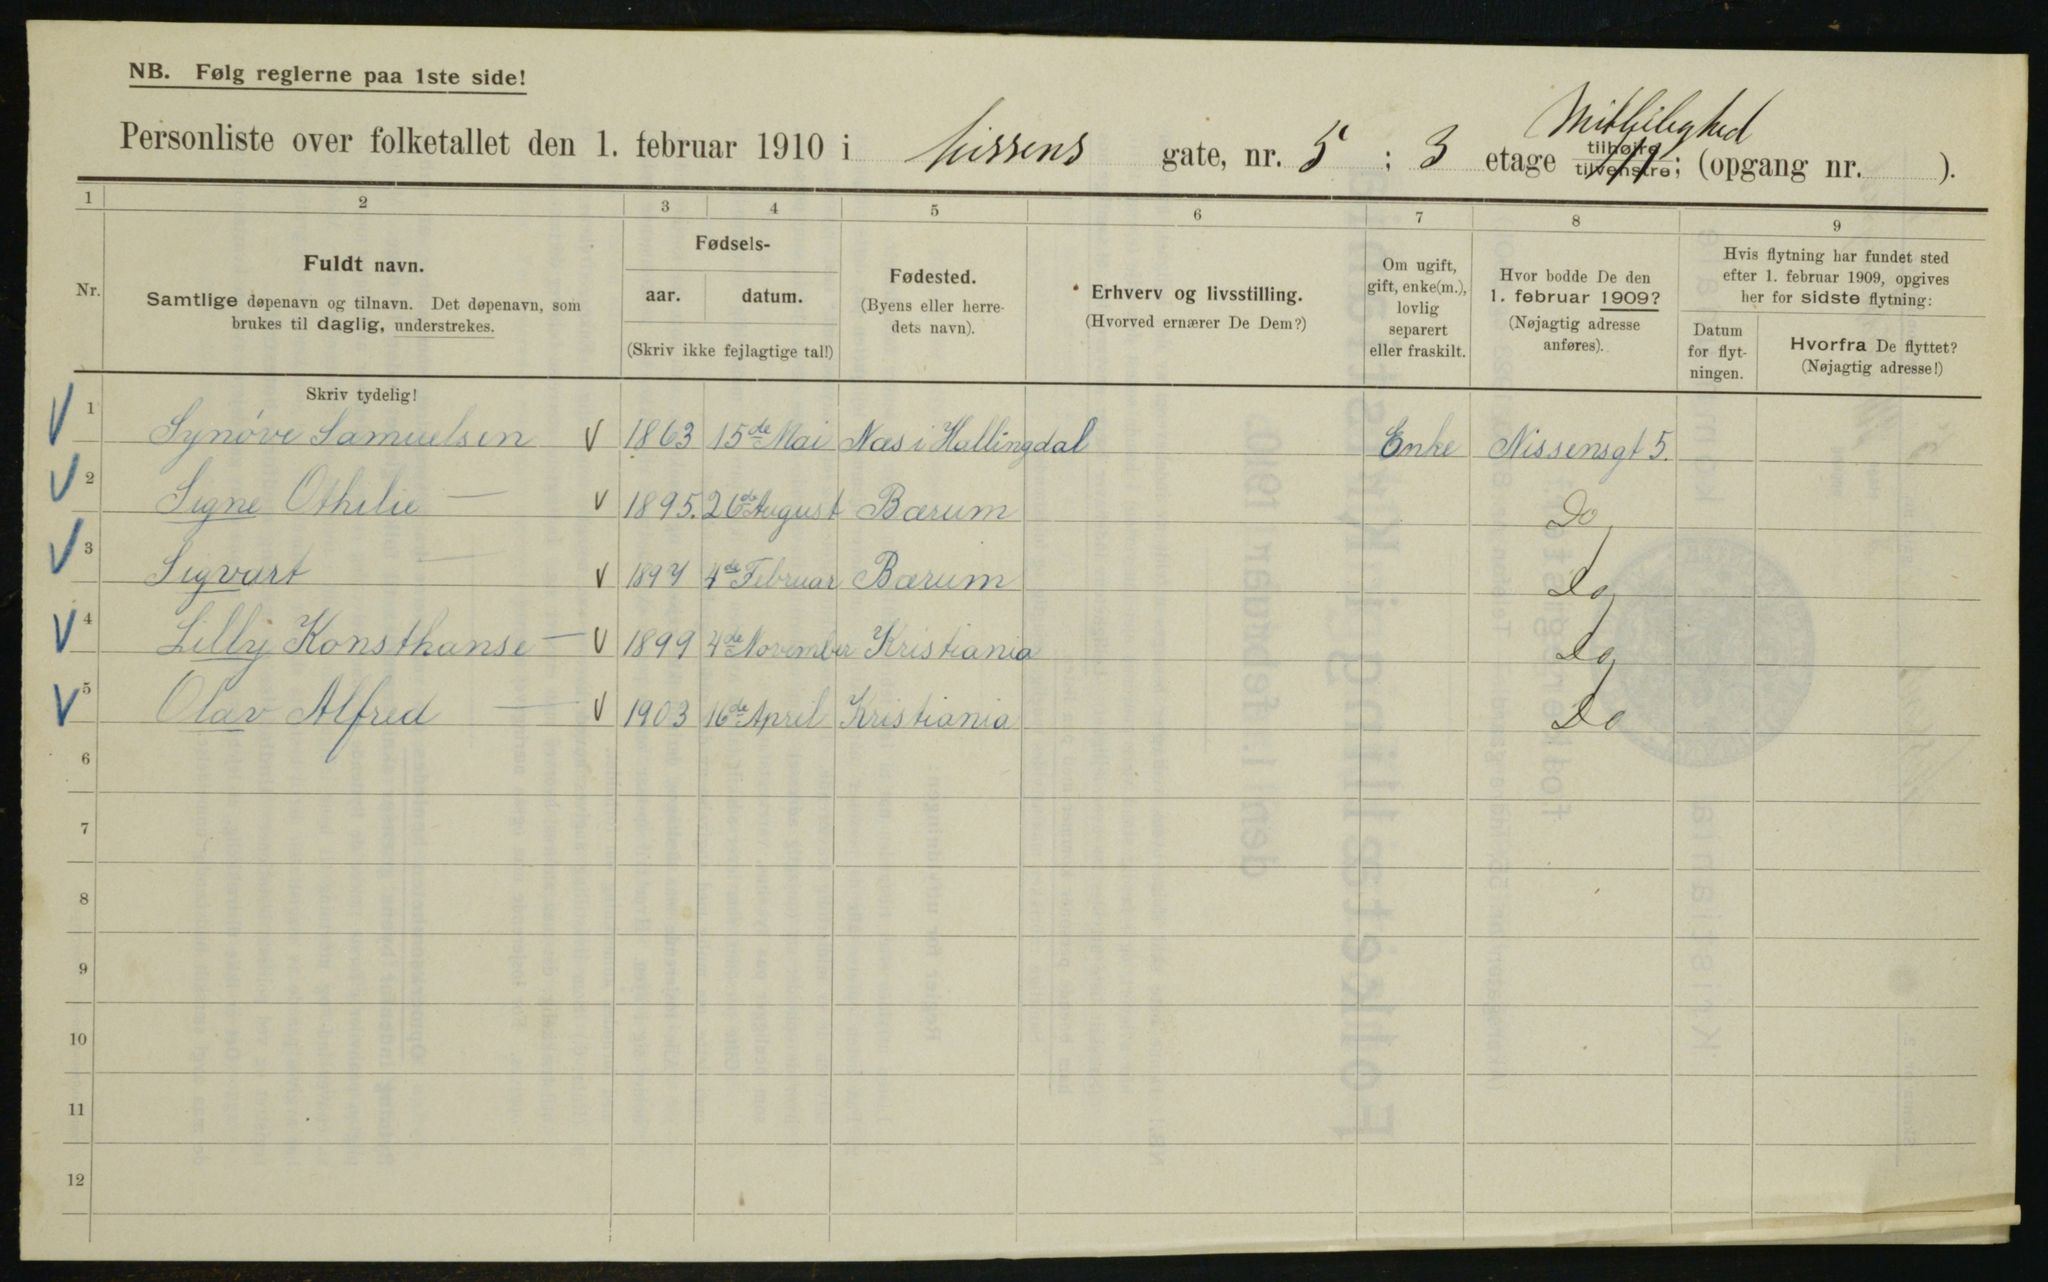 NB. Følg reglerne paa 1ste side!
Mitleilighed
Personliste over folketallet den 1. februar 1910 i Nissens gate, nr. 5 ; 3 etage tilhøire tilvenstre; (opgang nr. ).
1 2 3 4 5 6 7 8 9
Nr.
Fuldt navn.
Samtlige døpenavn og tilnavn. Det døpenavn, som
brukes til daglig, understrekes.
Fødsels-
aar. datum.
(Skriv ikke fejlagtige tal!)
Fødested.
(Byens eller herre-
dets navn).
Erhverv og livsstilling.
(Hvorved ernærer De Dem?)
Om ugift,
gift, enke(m.),
lovlig
separert
eller fraskilt.
Hvor bodde De den
1. februar 1909?
(Nøjagtig adresse
anføres).
Hvis flytning har fundet sted
efter 1. februar 1909, opgives
her for sidste flytning:
Datum
for flyt-
ningen.
Hvorfra De flyttet?
(Nøjagtig adresse!)
Skriv tydelig!
1 Synøve Samuelsen 1863 15de Mai Næs i Hallingdal Enke Nissensgt 5.
2 Signe Othilie — 1895. 26de August Bærum Do
3 Sigvart — 1897 4de Februar Bærum Do
4 Lilly Konsthanse — 1899 4de November Kristiania Do
5 Olav Alfred — 1903 16de April Kristiania Do
6
7
8
9
10
11
12